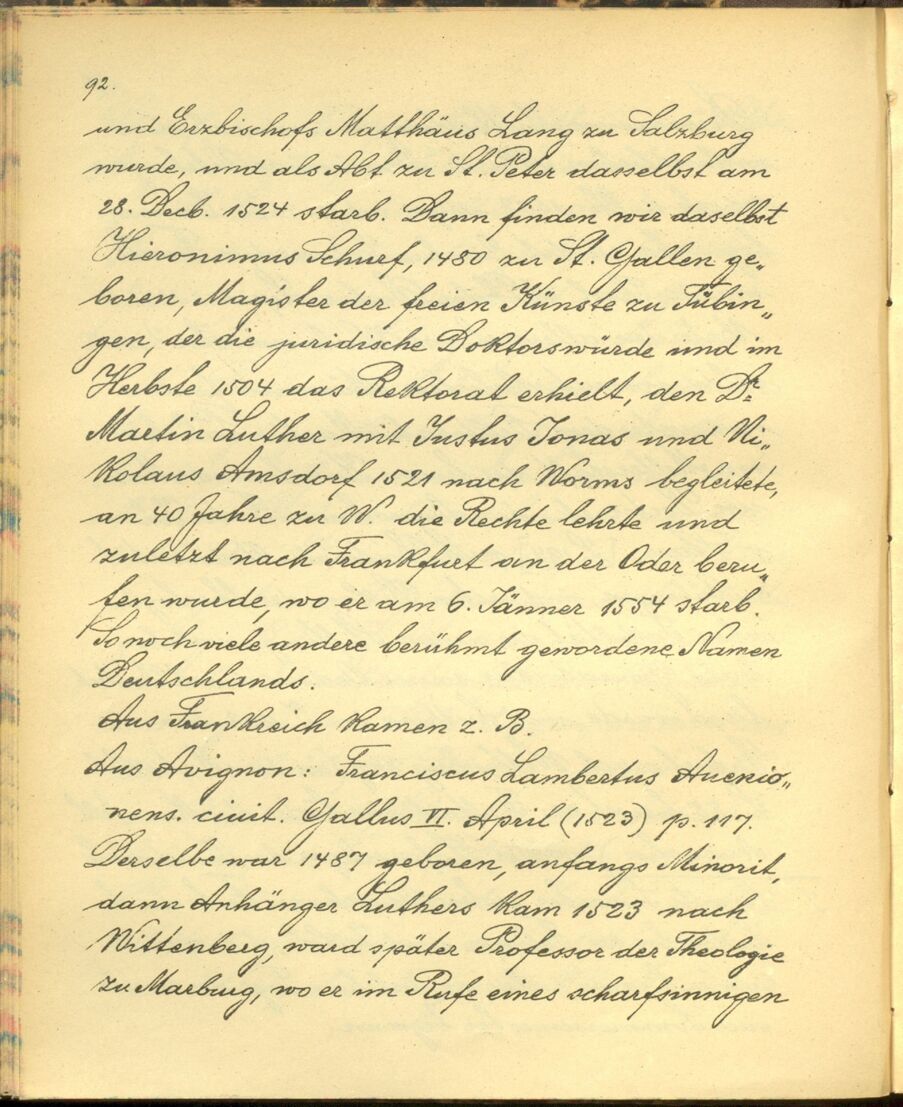 92.
und Erzbischofs Matthäus Lang zu Salzburg
wurde, und als Abt zu St. Peter dasselbst am
28. Decb. 1524 starb. Dann finden wir daselbst
Hieronimus Schurf, 1480 zu St. Gallen ge„
boren, Magister der freien Künste zu Tübin„
gen, der die juridische Doktorswürde und im
Herbste 1504 das Rektorat erhielt, den Dr.
Martin Luther mit Justus Jonas und Ni„
kolaus Amsdorf 1521 nach Worms begleitete,
an 40 Jahre zu W. die Rechte lehrte und
zuletzt nach Frankfurt an der Oder beru„
fen wurde, wo er am 6. Jänner 1554 starb.
So noch viele andere berühmt gewordene Namen
Deutschlands.
Aus Frankreich kamen z. B.
Aus Avignon: Franciscus Lambertus Auenio„
nens. ciuit. Gallus VI. April (1523) p. 117.
Derselbe war 1487 geboren, anfangs Minorit,
dann Anhänger Luthers kam 1523 nach
Wittenberg, ward später Professor der Theologie
zu Marburg, wo er im Rufe eines scharfsinnigen